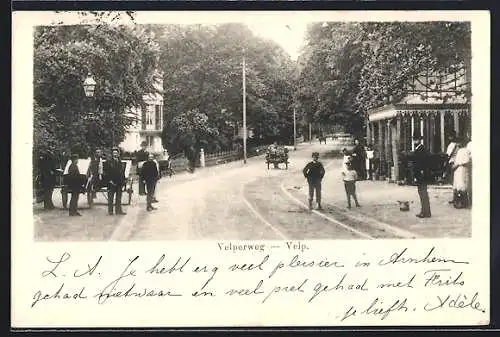 Velperweg — Velp.
L. A. Je hebt erg veel pleisier in Arnhem
gehad nietwaar en veel pret gehad met Frits
je liefh. Adèle.